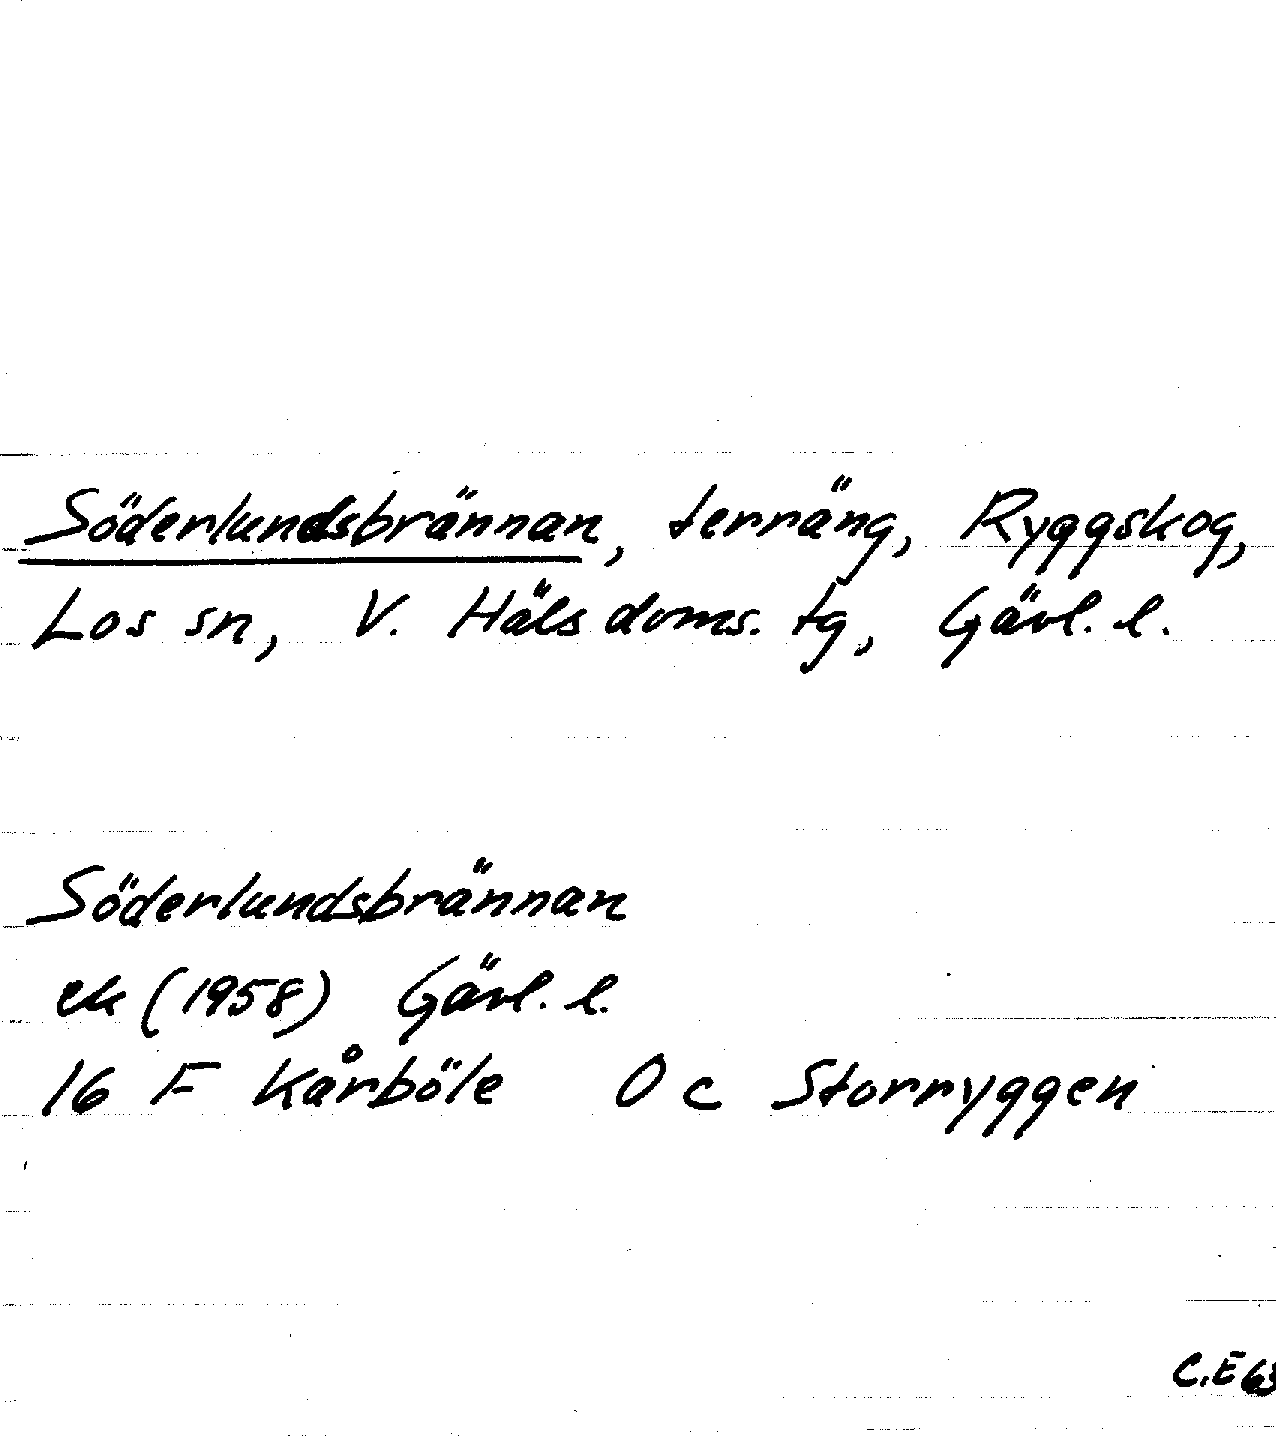 Söderlundsbrännan, terräng, Ryggskog,
Los sn, V. Häls doms. tg, Gävl. l.
Söderlundsbrännan
ek (1958) Gävl. l.
16 F Kårböle 0 c Storryggen
C.E